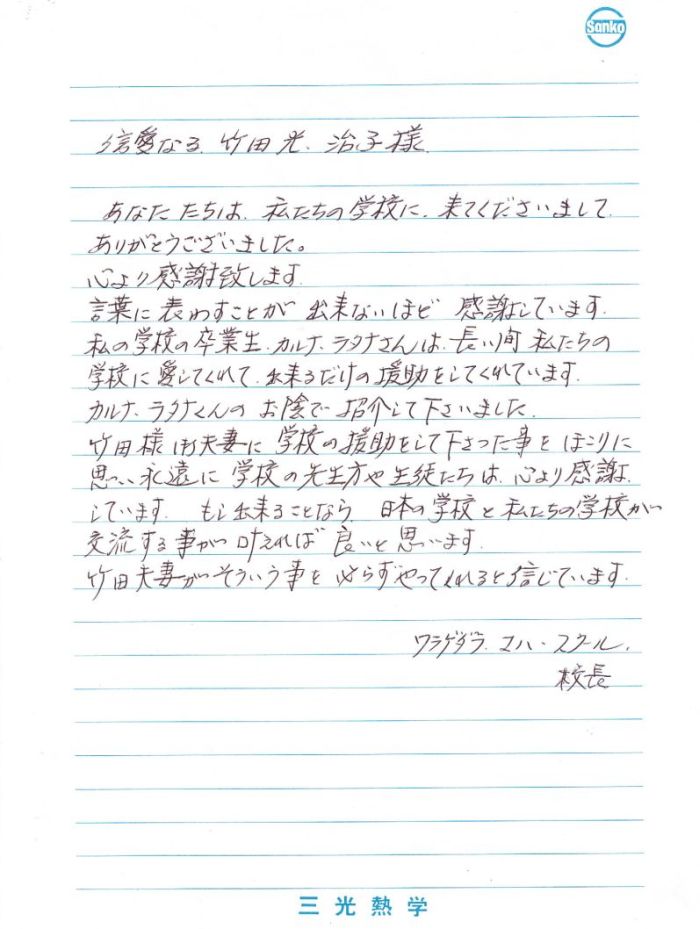 Sanko
信愛なる、竹田光、治子様
あなたたちは、私たちの学校に、来てくださいまして
ありがとうございました。
心より感謝致します
言葉に表わすことが出来ないほど感謝しています。
私の学校の卒業生、カルナ、ラタナさんは、長い間私たちの
学校に愛してくれて、出来るだけの援助をしてくれています。
カルナ、ラタナくんのお陰で紹介して下さいました。
竹田様御夫妻に学校の援助をして下さった事をほこりに
思い、永遠に学校の先生方や生徒たちは、心より感謝
しています。もし出来ることなら、日本の学校と私たちの学校が
交流する事が叶えれば良いと思います。
竹田夫妻がそういう事を必らずやってくれると信じています。
ワラゲダラ、マハ・スクール、
校長
三光熱学